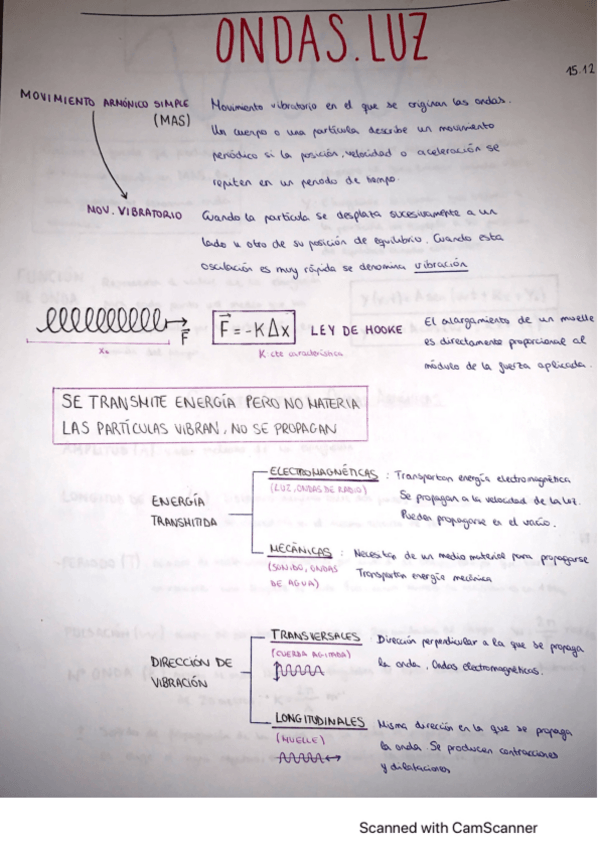 ONDAS. LUZ
15.12
MOVIMIENTO ARMÓNICO SIMPLE
(MAS)
Movimiento vibratorio en el que se originan las ondas.
Un cuerpo o una partícula describe un movimiento
periódico si la posición, velocidad o aceleración se
repiten en un periodo de tiempo.
MOV. VIBRATORIO
Cuando la partícula se desplaza sucesivamente a un
lado u otro de su posición de equilibrio. Cuando esta
oscilación es muy rápida se denomina vibración
F
F = -K Δx
LEY DE HOOKE
El alargamiento de un muelle
es directamente proporcional al
módulo de la fuerza aplicada.
X₀
K cte característica
SE TRANSMITE ENERGÍA PERO NO MATERIA
LAS PARTÍCULAS VIBRAN, NO SE PROPAGAN
ENERGÍA
TRANSMITIDA
ELECTROMAGNÉTICAS : Transportan energía electromagnética
(LUZ, ONDAS DE RADIO)
Se propagan a la velocidad de la luz.
Pueden propagarse en el vacío.
MECÁNICAS : Necesitan de un medio material para propagarse
(SONIDO, ONDAS
DE AGUA)
Transportan energía mecánica
DIRECCIÓN DE
VIBRACIÓN
TRANSVERSALES
(CUERDA AGITADA)
Dirección perpendicular a la que se propaga
la onda. Ondas electromagnéticas.
LONGITUDINALES
(MUELLE)
Misma dirección en la que se propaga
la onda. Se producen contracciones
y dilataciones
Scanned with CamScanner